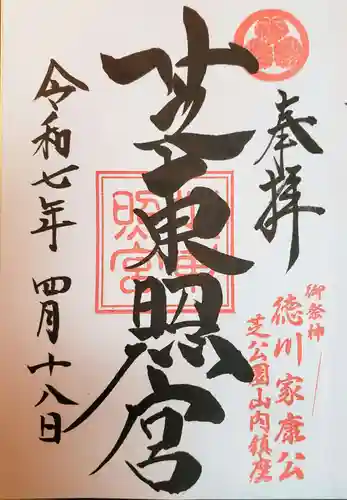 奉拝
御祭神
徳川家康公
芝公園山内鎮座
芝東照宮
芝東照宮
令和七年 四月十八日